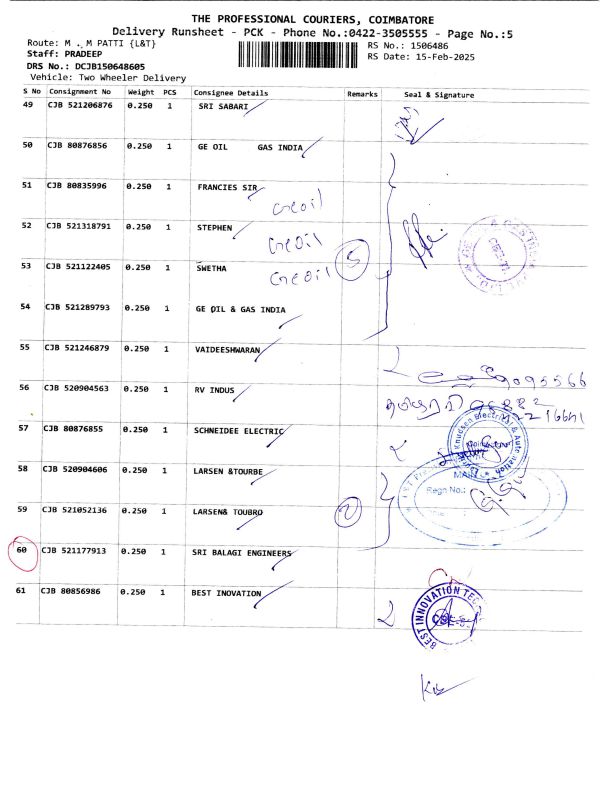 THE PROFESSIONAL COURIERS, COIMBATORE
Delivery Runsheet - PCK - Phone No.:0422-3505555 - Page No.:5
Route: M . M PATTI {L&T}
RS No.: 1506486
Staff: PRADEEP
RS Date: 15-Feb-2025
DRS No.: DCJB150648605
Vehicle: Two Wheeler Delivery
S No Consignment No Weight PCS Consignee Details Remarks Seal & Signature
49 CJB 521206876 0.250 1 SRI SABARI
50 CJB 80876856 0.250 1 GE OIL GAS INDIA
51 CJB 80835996 0.250 1 FRANCIES SIR
Geoil
52 CJB 521318791 0.250 1 STEPHEN
Geoil
53 CJB 521122405 0.250 1 SWETHA
Geoil 5
54 CJB 521289793 0.250 1 GE OIL & GAS INDIA
55 CJB 521246879 0.250 1 VAIDEESHWARAN
56 CJB 520904563 0.250 1 RV INDUS
57 CJB 80876855 0.250 1 SCHNEIDEE ELECTRIC
Knudsen Electrical & Automation
58 CJB 520904606 0.250 1 LARSEN &TOURBE
Regn No.:
59 CJB 521052136 0.250 1 LARSEN& TOUBRO 2
60 CJB 521177913 0.250 1 SRI BALAGI ENGINEERS
61 CJB 80856986 0.250 1 BEST INOVATION
BEST INNOVATION